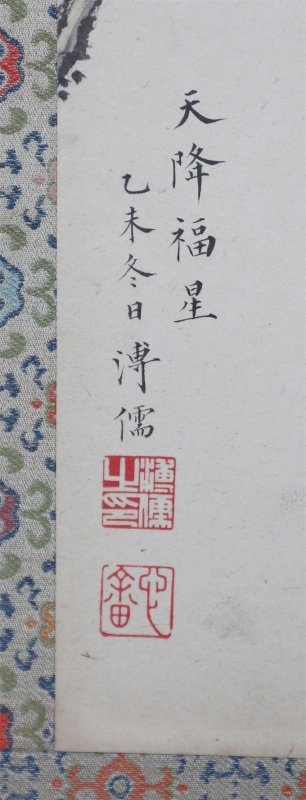 天降福星
乙未冬日
溥儒
溥儒之印